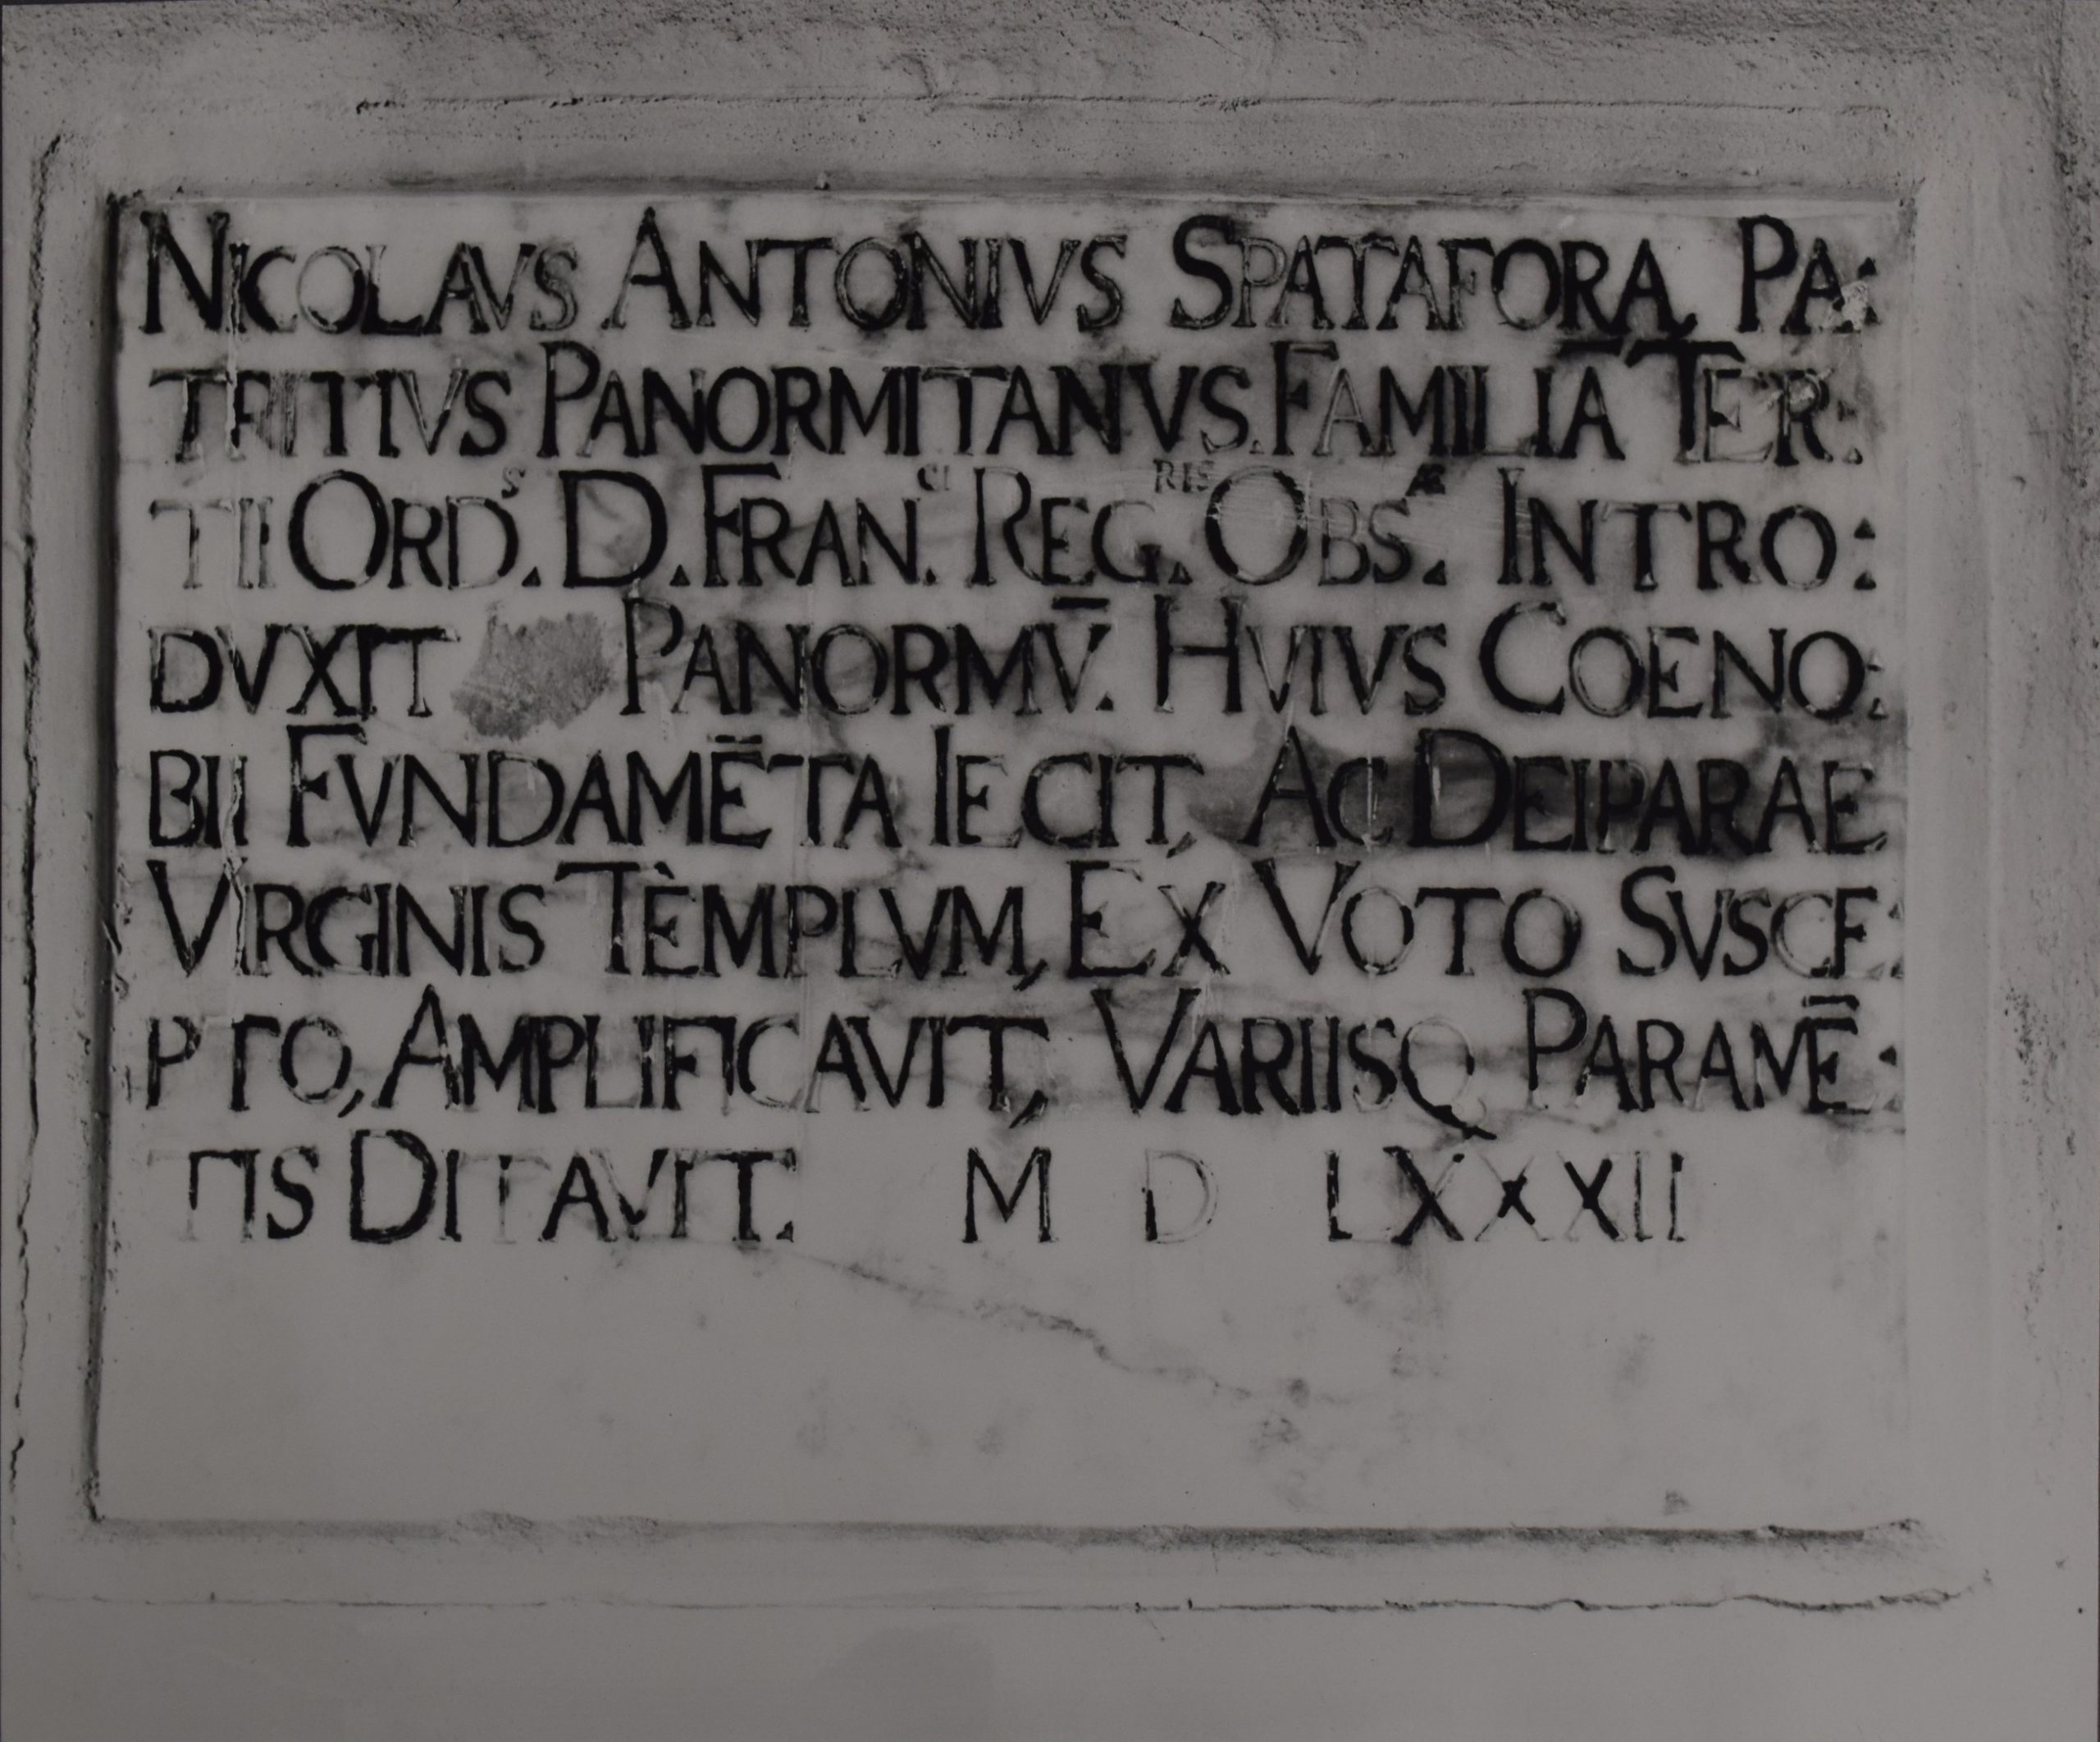 NICOLAVS ANTONIVS SPATAFORA, PA:
TRITIVS PANORMITANVS. FAMILIĀ TER:
TII ORDˢ. D. FRAN.ᶜᴵ REG.ᴿᴵˢ OBS.ᴬᴱ INTRO:
DVXIT PANORMV̄. HVIVS COENO:
BII FVNDAMĒTA IECIT, AC DEIPARAE
VIRGINIS TÈMPLVM, EX VOTO SVSCE:
PTO, AMPLIFICAVIT, VARIISQ PARAMĒ:
TIS DITAVIT. M D LXXXII